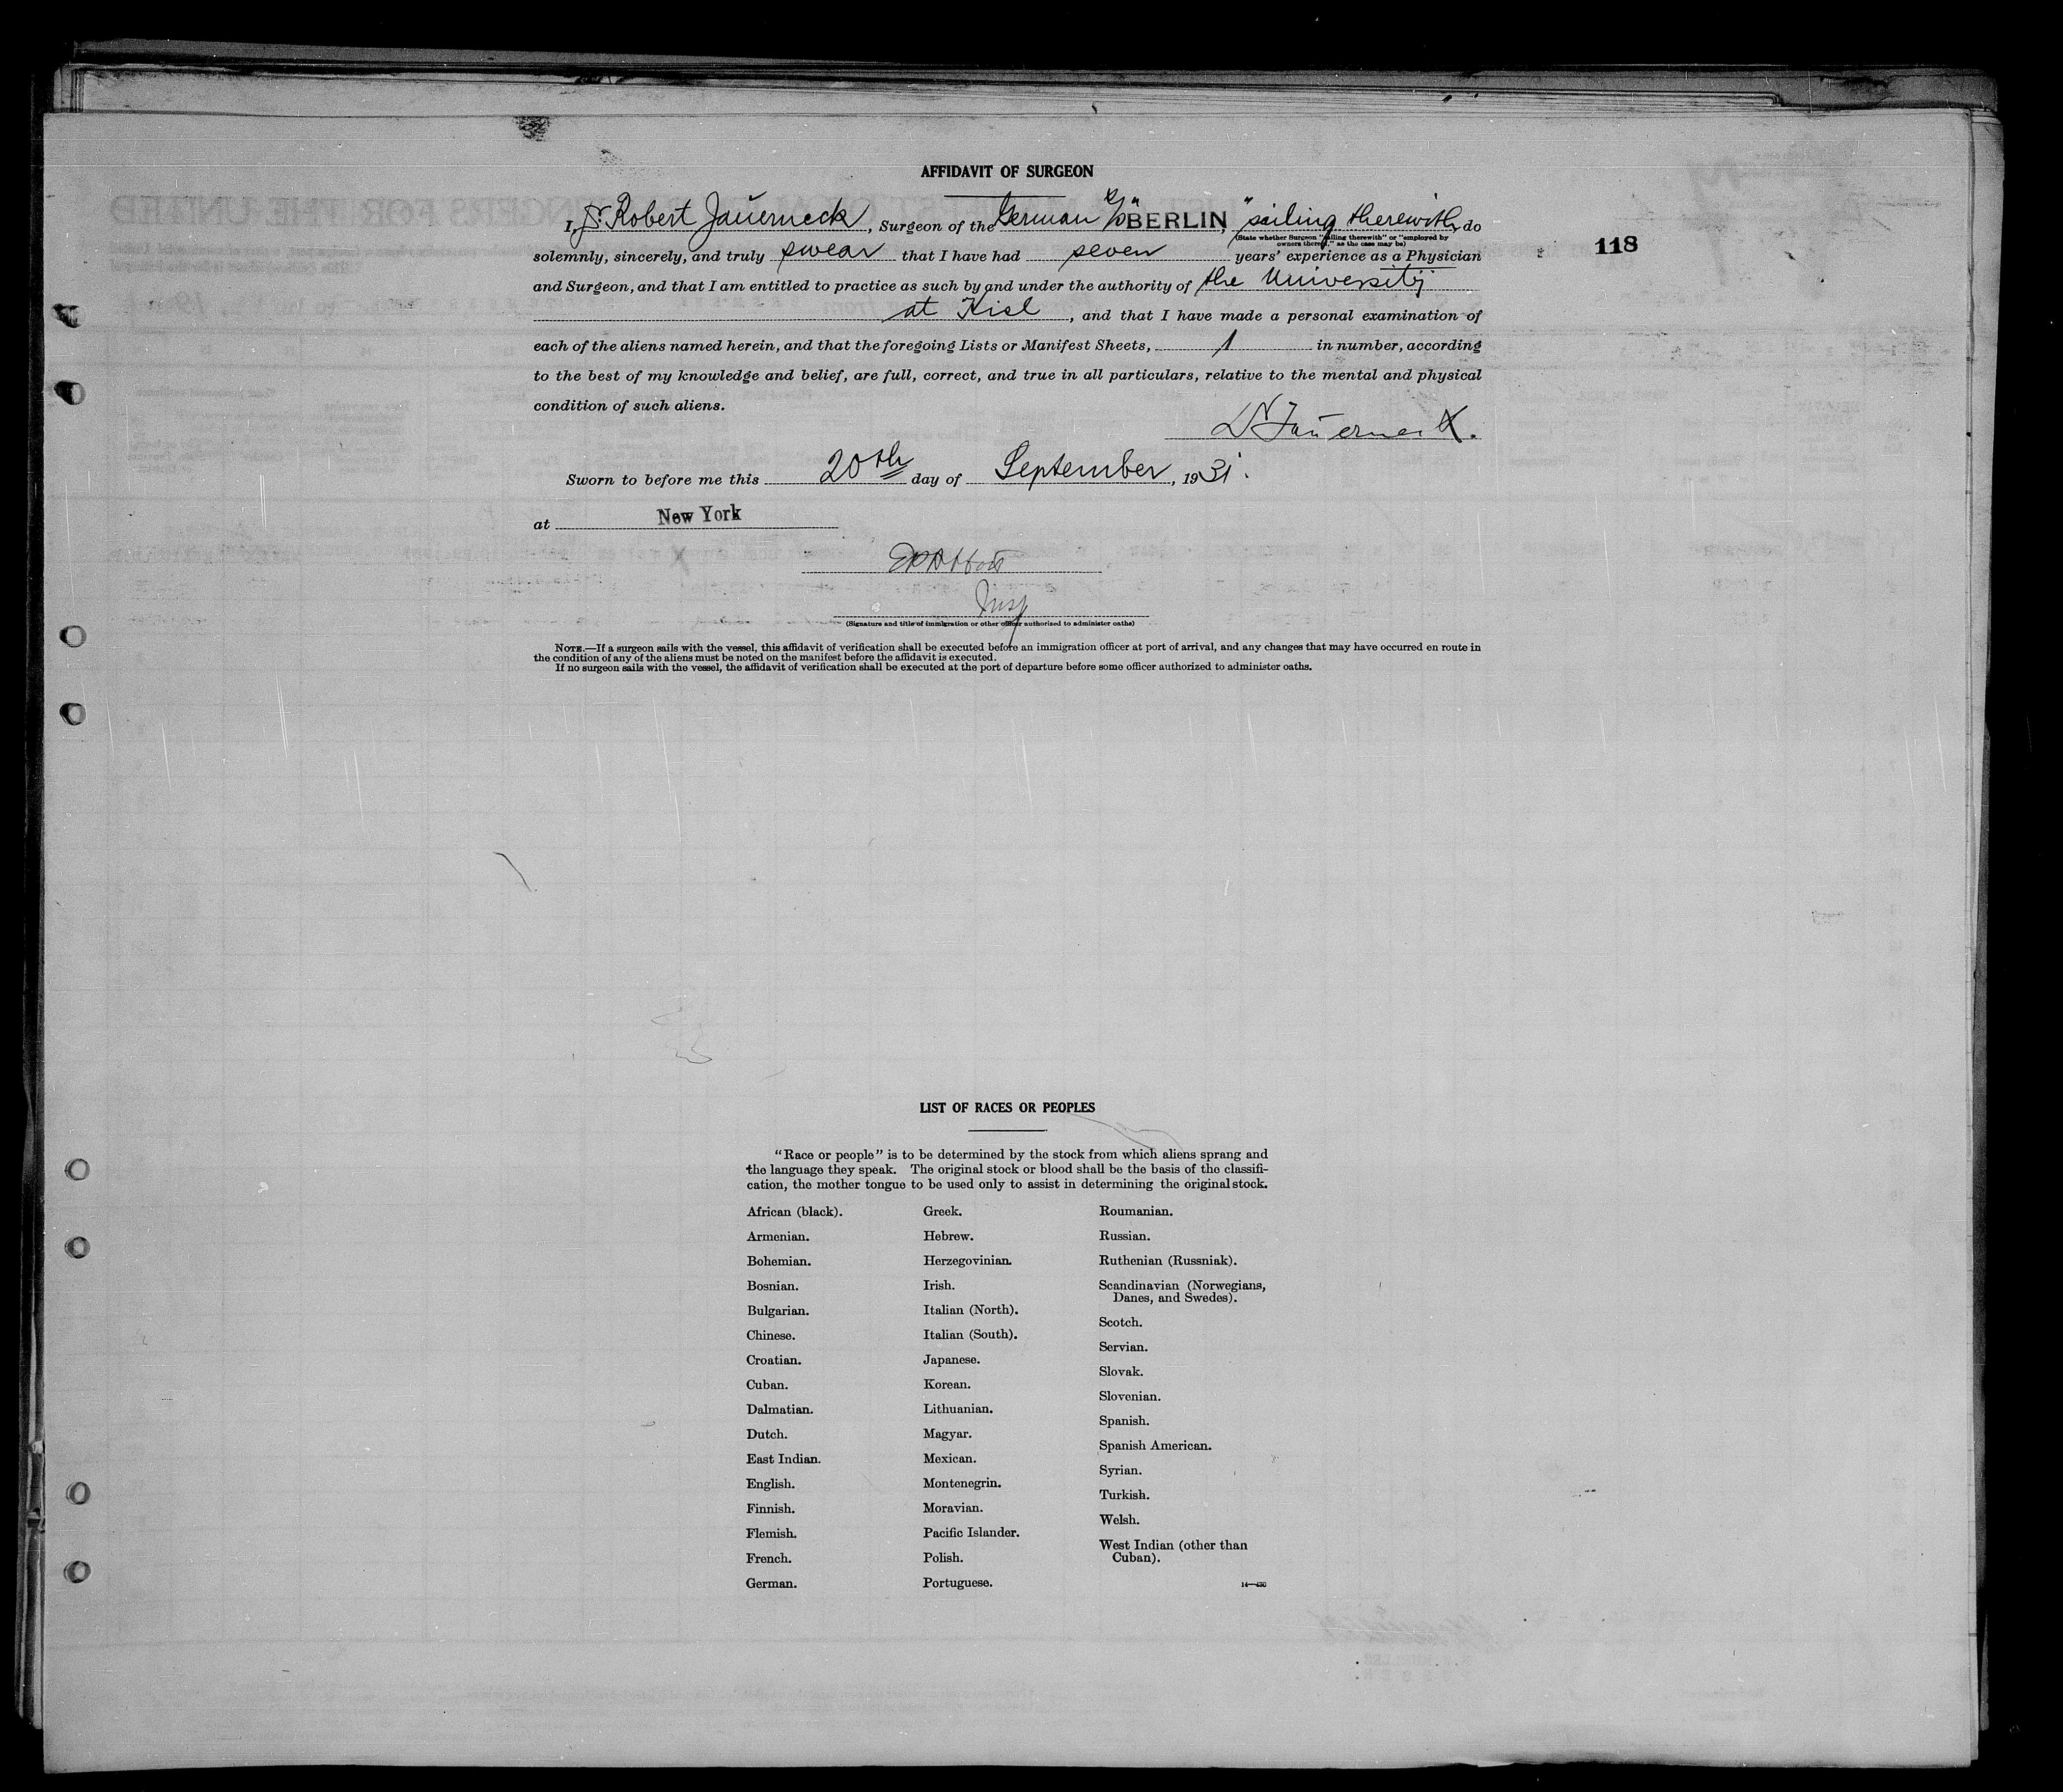 AFFIDAVIT OF SURGEON
I, Dr Robert Jauerneck, Surgeon of the German S/S "BERLIN", "sailing therewith, do
(State whether Surgeon "sailing therewith" or "employed by
owners thereof," as the case may be)
118
solemnly, sincerely, and truly swear that I have had seven years' experience as a Physician
and Surgeon, and that I am entitled to practice as such by and under the authority of the University
at Kiel, and that I have made a personal examination of
each of the aliens named herein, and that the foregoing Lists or Manifest Sheets, 1 in number, according
to the best of my knowledge and belief, are full, correct, and true in all particulars, relative to the mental and physical
condition of such aliens.
Dr Jauerneck.
Sworn to before me this 20th day of September, 1931.
at New York
Insp
(Signature and title of immigration or other officer authorized to administer oaths)
NOTE.—If a surgeon sails with the vessel, this affidavit of verification shall be executed before an immigration officer at port of arrival, and any changes that may have occurred en route in
the condition of any of the aliens must be noted on the manifest before the affidavit is executed.
If no surgeon sails with the vessel, the affidavit of verification shall be executed at the port of departure before some officer authorized to administer oaths.
LIST OF RACES OR PEOPLES
"Race or people" is to be determined by the stock from which aliens sprang and
the language they speak. The original stock or blood shall be the basis of the classifi-
cation, the mother tongue to be used only to assist in determining the original stock.
African (black).
Armenian.
Bohemian.
Bosnian.
Bulgarian.
Chinese.
Croatian.
Cuban.
Dalmatian.
Dutch.
East Indian.
English.
Finnish.
Flemish.
French.
German.
Greek.
Hebrew.
Herzegovinian.
Irish.
Italian (North).
Italian (South).
Japanese.
Korean.
Lithuanian.
Magyar.
Mexican.
Montenegrin.
Moravian.
Pacific Islander.
Polish.
Portuguese.
Roumanian.
Russian.
Ruthenian (Russniak).
Scandinavian (Norwegians,
Danes, and Swedes).
Scotch.
Servian.
Slovak.
Slovenian.
Spanish.
Spanish American.
Syrian.
Turkish.
Welsh.
West Indian (other than
Cuban).
14—430